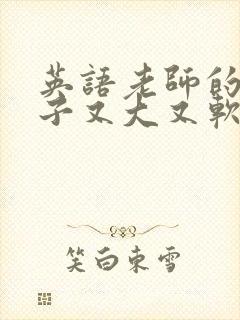 英語老師的
子又大又軟
笑白東雪